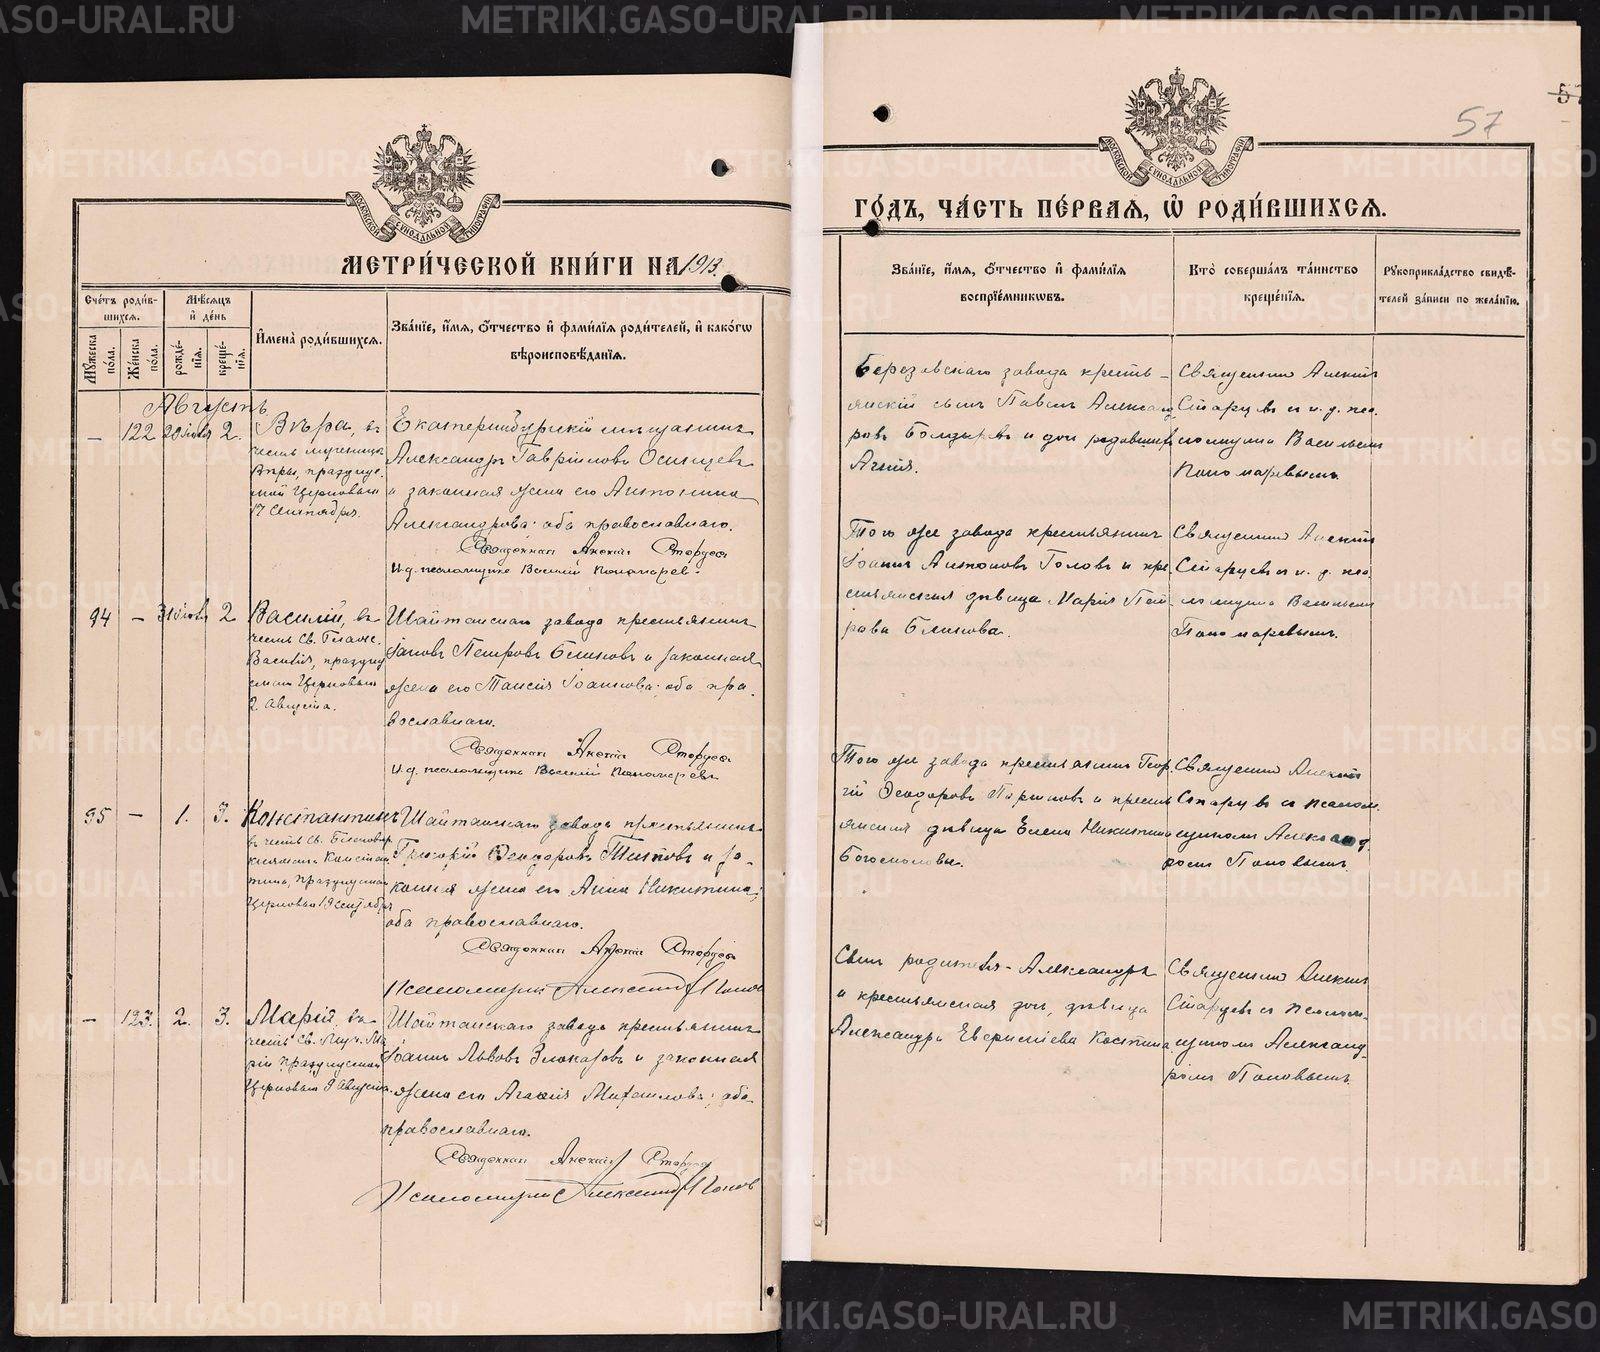 МЕТРИ́ЧЕСКОЙ КНИ́ГИ НА 1913.
Сче́тъ роди́в-
шихся.
Мѣ́сяцъ
и҆ де́нь
И҆мена̀ роди́вшихся.
Зва́нїе, и҆́мя, ѻ҆́тчество и҆ фами́лїя роди́телей, и҆ како́гѡ
вѣроисповѣ́данїя.
Мꙋ́жеска
по́ла.
Же́нска
по́ла.
рожде́-
нїя.
креще́-
нїя.
Августъ
— 122 29 іюля 2.
Вѣра, въ
честь мученицы
Вѣры, празднуе-
мой Церковью
17 Сентября.
Екатеринбургскій мѣщанинъ
Александръ Гавріиловъ Осинцевъ
и законная жена его Антонина
Александрова: оба православнаго.
Священникъ Алексій Старцевъ
И.д. псаломщика Василій Пономаревъ.
94 — 31 іюля 2
Василій, въ
честь Св. Блаж.
Василія, праздну
емаго Церковью
2 Августа.
Шайтанскаго завода крестьянинъ
Іаковъ Петровъ Блиновъ и законная
жена его Таисія Іоаннова: оба пра-
вославнаго.
Священникъ Алексій Старцевъ
И.д. псаломщика Василій Пономаревъ
95 — 1. 3.
Константинъ
въ честь Св. Благовѣр.
князя Констан-
тина, празднуемаго
Церковью 19 сентября
Шайтанскаго завода крестьянинъ
Григорій Ѳеодоровъ Титовъ и за-
конная жена его Анна Никитина;
оба православнаго.
Священникъ Алексій Старцевъ
Псаломщикъ Александръ Поповъ
— 123. 2. 3.
Марія, въ
честь Св. Муч. Ма
ріи празднуемой
Церковью 9 Августа.
Шайтанскаго завода крестьянинъ
Іоаннъ Львовъ Злоказовъ и законная
жена его Агаѳія Михаилова; оба
православнаго.
Священникъ Алексій Старцевъ
Псаломщикъ Александръ Поповъ
57
ГО́ДЪ, ЧА́СТЬ ПЕ́РВАЯ, Ѡ҆ РОДИ́ВШИХСЯ.
Зва́нїе, и҆́мя, ѻ҆́тчество и҆ фами́лїя
воспрїе́мникѡвъ.
Кто̀ соверша́лъ та́инство
креще́нїя.
Рꙋкоприкла́дство свидѣ́-
телей за́писи по жела́нїю.
Березовскаго завода кресть-
янскій сынъ Павелъ Александ
ровъ Болдыревъ и дочь родовыхъ
Агнія.
Священникъ Алексій
Старцевъ съ и. д. пса-
ломщика Василіемъ
Пономаревымъ.
Того же завода крестьянинъ
Іоаннъ Антоновъ Головъ и кре
стьянская дѣвица Марія Пет-
рова Блинова.
Священникъ Алексій
Старцевъ съ и. д. пса-
ломщика Василіемъ
Пономаревымъ.
Того же завода крестьянинъ Геор
гій Ѳеодоровъ и кресть
янская дѣвица Елена Никитина
Богословы.
Священникъ Алексій
Старцевъ съ псалом-
щикомъ Александ
ромъ Поповымъ.
Сынъ родителя - Александръ
и крестьянская дочь, дѣвица
Александра Еверистіева Костина.
Священникъ Алексій
Старцевъ съ псалом-
щикомъ Александ-
ромъ Поповымъ.
METRIKI.GASO-URAL.RU